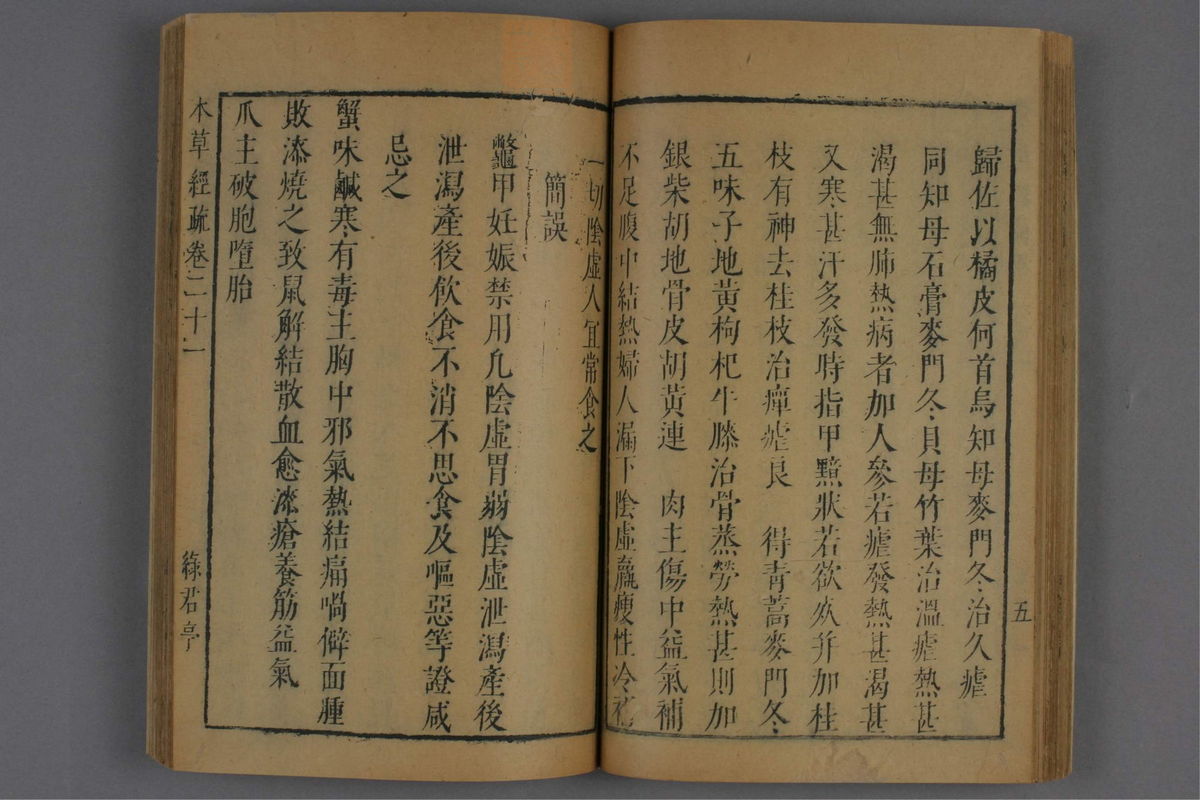 五
歸佐以橘皮何首烏知母麥門冬治久瘧
同知母石膏麥門冬貝母竹葉治溫瘧熱甚
渴甚無肺熱病者加人參若瘧發熱甚渴甚
又寒甚汗多發時指甲黲狀若欲死并加桂
枝有神去桂枝治癉瘧良　得青蒿麥門冬
五味子地黃枸杞牛膝治骨蒸勞熱甚則加
銀柴胡地骨皮胡黃連　肉主傷中益氣補
不足腹中結熱婦人漏下陰虛羸瘦性冷
一切陰虛人宜常食之
簡誤
鼈甲妊娠禁用凡陰虛胃弱陰虛泄瀉產後
泄瀉產後飲食不消不思食及嘔惡等證咸
忌之
蟹味鹹寒有毒主胸中邪氣熱結痛喎僻面腫
敗漆燒之致鼠解結散血愈漆瘡養筋益氣
爪主破胞墮胎
本草經疏卷二十一
綠君亭